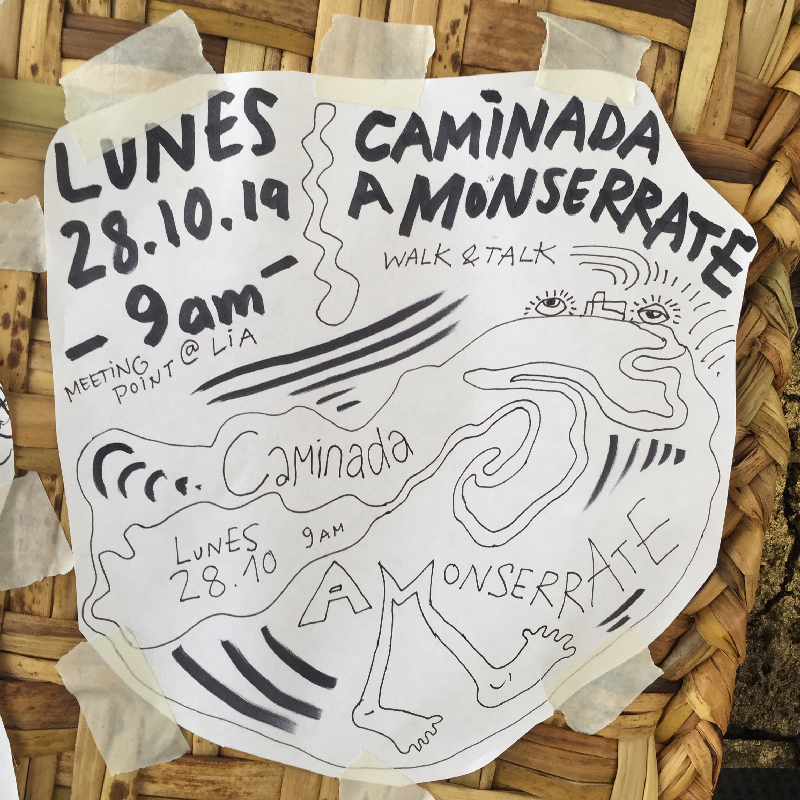 LUNES
28.10.19
- 9am -
MEETING
POINT @ LIA
CAMINADA
A MONSERRATE
WALK & TALK
Caminada
LUNES 9AM
28.10
A MONSERRATE